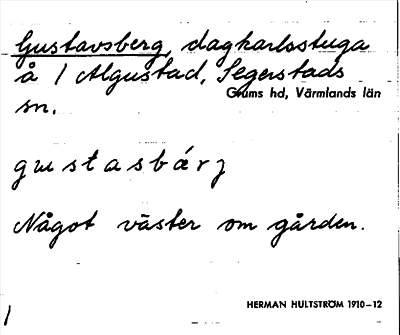 Gustavsberg, dagkarlsstuga
å 1 Algustad, Segerstads
Grums hd, Värmlands län
sn.
gustasbárj
Något väster om gården.
HERMAN HULTSTRÖM 1910–12
1